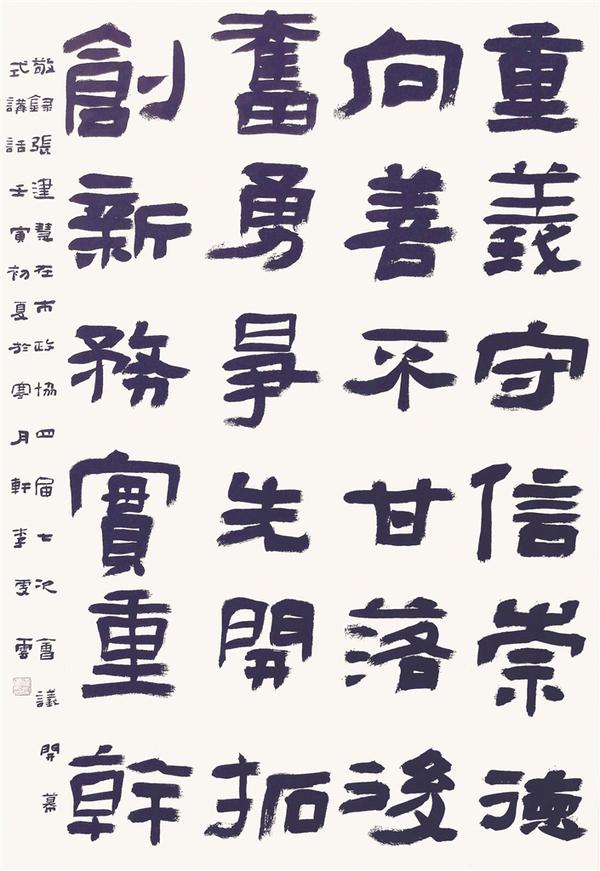 重義守信崇德
向善不甘落後
奮勇爭先開拓
創新務實重幹
敬録張建慧在市政協四届七次會議開幕
式講話壬寅初夏於寒月軒李雯雲